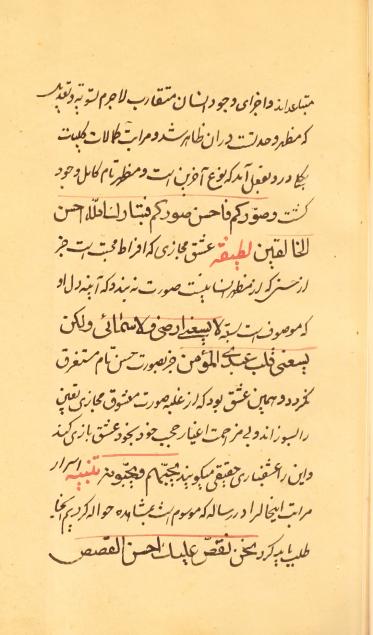 متباعد اند و اجزای وجود انسان متقارب لاجرم تسویه و تعدیل
که مظهر وحدتست در ان ظاهر شد و مراتب کمالات کلیات
بکار در و بفعل آمد که نوع آخرین است و مظهر تام کامل وجود
گشت وصوّرکم فاحسن صورکم فتبارك الله احسن
الخالقین لطیفه عشق مجازی که افراط محبت است جز
از حسنی که از مظهر انسانیست صورت نه بندد که آینه دل او
که موصوف است بسرّ لا یسعنی ارضی ولا سمائی ولکن
یسعنی قلب عبدی المؤمن جز بصورت حسن تام مستغرق
نگردد و همین عشق بود که از غلبه صورت معشوق مجازی تعین
را بسوزاند و بی مزاحمت اغیار حجب خود بخود عشق بازی کند
و این را عشق حقیقی میگویند یحبّهم ویحبّونه تنبیه اسرار
مراتب اینجا را در رساله که موسوم است بمشاهده حواله کردیم انجا
طلب باید کرد نحن نقصّ علیك احسن القصص